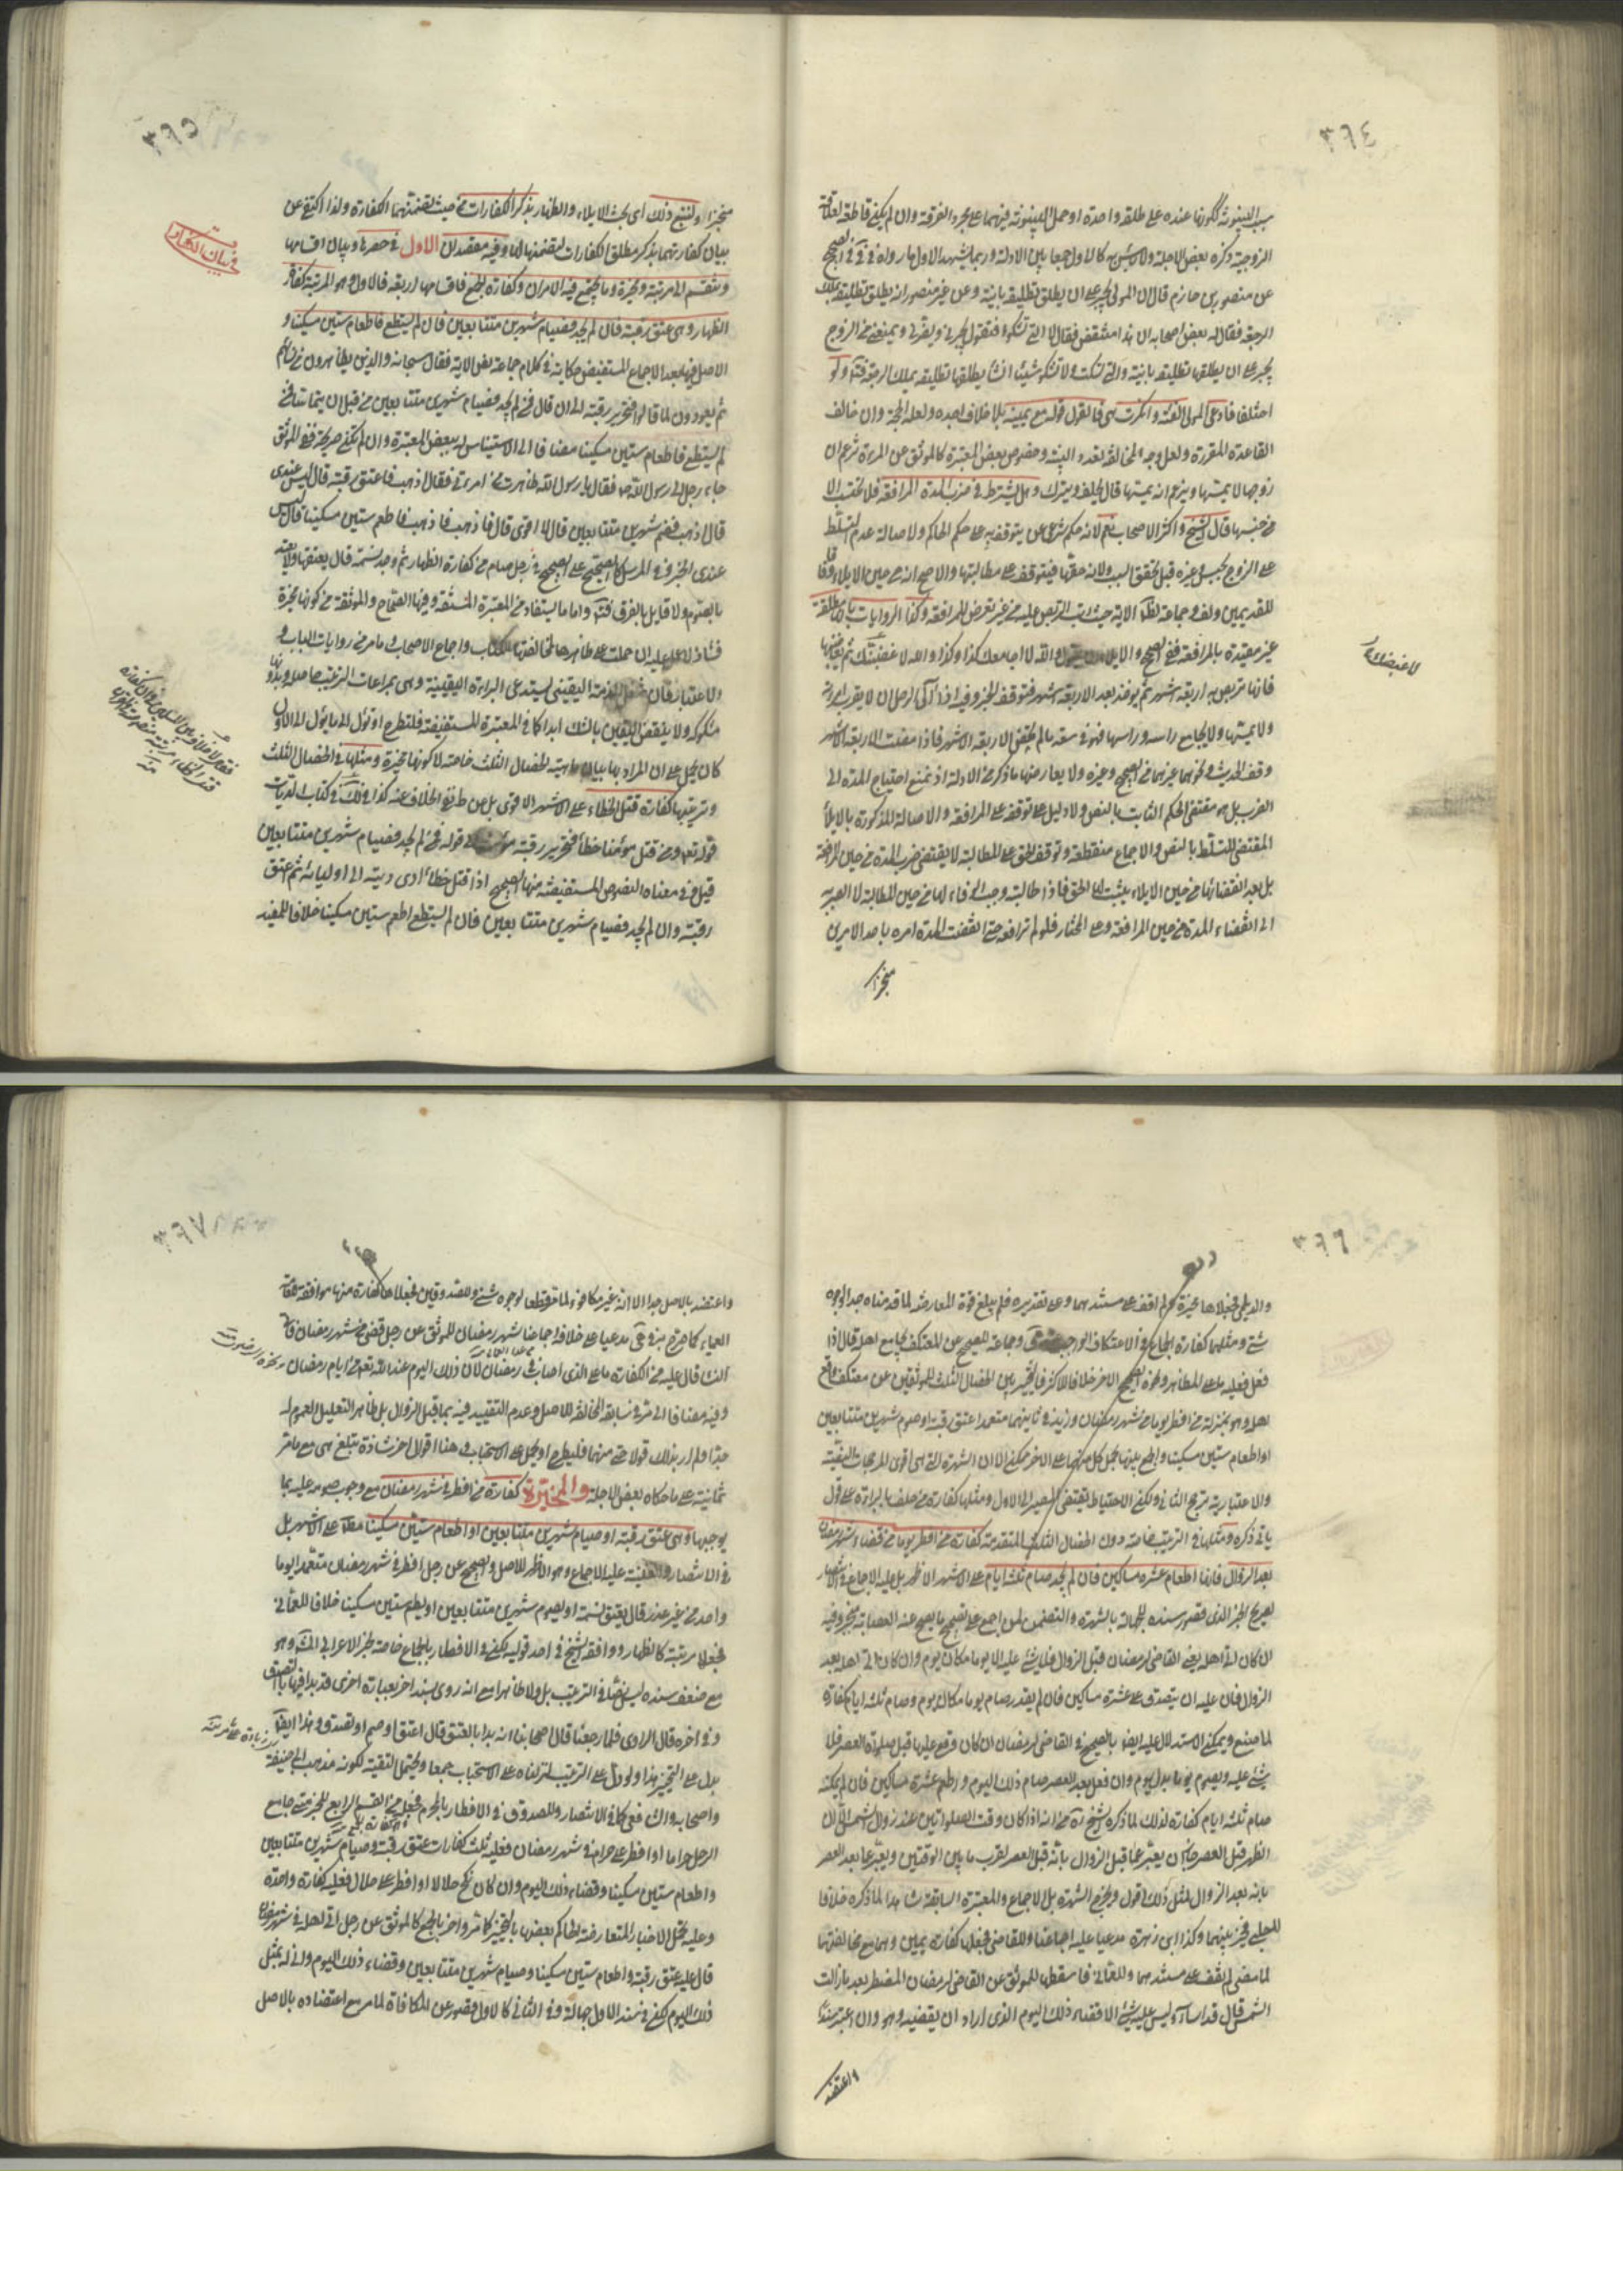 ٣٦٤
سبب البينونة لكونها عنده على طلقة واحدة او حمل البينونة فيهما على مجرد الفرقة وان لم يكن قاطعة لعلاقة
الزوجية ذكره بعض الاجلة ولا بأس به كالاول جمعا بين الادلة وربما يشهد للاول ما رواه في في الصحيح
عن منصور بن حازم قال ان المولى يجبر على ان يطلق تطليقة باينة وعن غير منصور انه يطلق تطليقة يملك
الرجعة فقال له بعض اصحابه ان هذا منتقض فقال لا التي تشكو فتقول يجبرني ويضرني ويمنعني من الزوج
يجبر على ان يطلقها تطليقة باينة والتي تسكت ولا تشكو ان شاء يطلقها تطليقة يملك الرجعة ولو
اختلفا فادعى المولى الفئة وانكرت هي فالقول قوله مع يمينه بلا خلاف اجده ولعله الحجة وان خالف
القاعدة المقررة ولعل وجه المخالفة تعذر البينة وخصوص بعض المعتبرة كالموثق عن المرءة تزعم ان
زوجها لا يمسها ويزعم انه يمسها قال يحلف ويترك وهل يشترط في ضرب المدة المرافعة فلا يحتسب الا
من حينها قال الشيخ واكثر الاصحاب نعم لانه حكم شرعي يتوقف على حكم الحاكم ولاصالة عدم التسلط
على الزوج بحبس وغيره قبل تحقق السبب ولانه حقها فيتوقف على مطالبتها والاصح انه من حين الايلاء وفاقا
للقديمين ولف وجماعة لظاهر الاية حيث رتب التربص عليه من غير تعرض للمرافعة وكذا الروايات مطلقة
غير مقيدة بالمرافعة ففي الصحيح والايلاء ان يقول والله لا اجامعك كذا وكذا والله لا غيضنك ثم يغاضبها
فانها تربص به اربعة اشهر ثم يؤخذ بعد الاربعة اشهر فتوقف الخبر وفيه اذا آلى الرجل ان لا يقرب امرأته
ولا يمسها ولا يجامع راسه وراسها فهو في سعة ما لم يمض الاربعة الاشهر فاذا مضت الاربعة الاشهر
وقف الحديث ونحوهما غيرهما من الصحيح وغيره ولا يعارضها ما ذكر من الادلة اذ نمنع احتياج المدة الى
الضرب بل هو مقتضى الحكم الثابت بالنص ولا دليل على توقفه على المرافعة والاصالة المذكورة بالايلاء
المقتضى للتسلط بالنص والاجماع منقطعة وتوقف الحق على المطالبة لا يقتضي ضرب المدة من حين المرافعة
بل بعد انقضائها من حين الايلاء يثبت لها الحق فاذا طالبته وجب الوفاء لها من حين المطالبة لا الصبر
الى انقضاء المدة من حين المرافعة وعلى المختار فلو لم ترافعه حتى انقضت المدة امره باحد الامرين
منجزا
لاغيضنك
٣٦٥
منجزا ولنتبع ذلك اى بحث الايلاء والظهار بذكر الكفارات من حيث تضمنهما الكفارة ولذا اكتفى عن
بيان كفارتهما بذكر مطلق الكفارات لتضمنها لها وفيه مقصدان الاول في حصرها وبيان اقسامها
وتنقسم الى مرتبة ومخيرة وما يجتمع فيه الامران وكفارة الجمع فاقسامها اربعة فالاول وهو المرتبة كفارة
الظهار وهى عتق رقبة فان لم يجد فصيام شهرين متتابعين فان لم يستطع فاطعام ستين مسكينا و
الاصل فيها بعد الاجماع المستفيض حكايته في كلام جماعة نص الاية فقال سبحانه والذين يظاهرون من نسائهم
ثم يعودون لما قالوا فتحرير رقبة الى ان قال فمن لم يجد فصيام شهرين متتابعين من قبل ان يتماسا فمن
لم يستطع فاطعام ستين مسكينا مضافا الى الاستيناس له ببعض المعتبرة وان لم تكن صريحة ففي الموثق
جاء رجل الى رسول الله ص فقال يا رسول الله ظاهرت من امرءتي فقال اذهب فاعتق رقبة قال ليس عندي
قال اذهب فصم شهرين متتابعين قال لا اقوى قال فاذهب فاطعم ستين مسكينا قال ليس
عندي الخبر وفي المرسل كالصحيح على الصحيح في رجل صام من كفارة الظهار ثم وجد نسمة قال يعتقها ولا يعتد
بالصوم ولا قايل بالفرق فتأمل واما ما يستفاد من المعتبرة المستفيضة وفيها الصحاح والموثقة من كونها مخيرة
فشاذ لا عمل عليه ان حملت على ظاهرها لمخالفتها للكتاب واجماع الاصحاب وما مر من روايات الباب و
الاعتبار فان شغل الذمة اليقيني يستدعي البراءة اليقينية وهى بمراعات الترتيب حاصلة وبدونها
مشكوكة ولا ينقض اليقين بالشك ابدا كما في المعتبرة المستفيضة فلتطرح او تؤول الى ما يؤول الى الاول
كان يحمل على ان المراد بها بيان ماهية الخصال الثلث خاصة لا كونها مخيرة ومثلها في الخصال الثلث
وترتيبها كفارة قتل الخطاء على الاشهر الاقوى
قوله تعالى ومن قتل مؤمنا خطأ فتحرير رقبة مؤمنة الى قوله فمن لم يجد فصيام شهرين متتابعين
قيل وفي معناه النصوص المستفيضة منها الصحيح اذا قتل خطأ ادى ديته الى اوليائه ثم اعتق
رقبة وان لم يجد فصيام شهرين متتابعين فان لم يستطع اطعم ستين مسكينا خلافا للمفيد
في بيان الكفارات
٣٦٦
والديلمي فجعلاها مخيرة ولم اقف على مستندهما وعلى تقديره فلم يبلغ قوة المعارضة لما قدمناه جدا لوجوه
شتى ومثلهما كفارة الجماع في الاعتكاف الواجب وجماعة للصحيح عن المعتكف يجامع اهله قال اذا
فعل فعليه ما على المظاهر ونحوه الصحيح الاخر خلافا للاكثر فالتخيير بين الخصال الثلث للموثقين عن معتكف واقع
اهله وهو بمنزلة من افطر يوما من شهر رمضان وزيد في ثانيهما متعمدا عتق رقبة او صوم شهرين متتابعين
او اطعام ستين مسكينا والجمع بينها بحمل كل منهما على الاخر ممكن الا ان الشهرة التي هي اقوى المرجحات النصية
والاعتبارية ترجح الثاني ولكن الاحتياط يقتضي المصير الى الاول ومثلها كفارة من حلف بالبراءة على قول
ياتي ذكره ومثلها في الترتيب خاصة دون الخصال الثلث المتقدمة كفارة من افطر يوما من قضاء شهر رمضان
بعد الزوال فانها اطعام عشرة مساكين فان لم يجد صيام ثلثة ايام على الاشهر الاظهر بل عليه الاجماع في الانتصار
لصريح الخبر الذي قصور سنده بالجهالة بالشهرة والتضمن لمن اجمع على تصحيح ما يصح عنه العصابة منجبر وفيه
ان كان اتى اهله يعني القاضي لرمضان قبل الزوال فلا شيء عليه الا يوما مكان يوم وان كان اتى اهله بعد
الزوال فان عليه ان يتصدق على عشرة مساكين فان لم يقدر صام يوما مكان يوم وصام ثلثة ايام كفارة
لما صنع ويمكن الاستدلال عليه ايضا بالصحيح في القاضي لرمضان ان كان وقع عليها قبل صلوة العصر فلا
شيء عليه ويصوم يوما بدل يوم وان فعل بعد العصر صام ذلك اليوم واطعم عشرة مساكين فان لم يمكنه
صام ثلثة ايام كفارة لذلك لما ذكره الشيخ ره من انه اذا كان وقت الصلواتين عند زوال الشمس الا ان
الظهر قبل العصر جاز ان يعبر عما قبل الزوال بانه قبل العصر لقرب ما بين الوقتين ويعبر عما بعد العصر
بانه بعد الزوال لمثل ذلك اقول ويخرج الشهرة بل الاجماع والمعتبرة السابقة شاهدا لما ذكره خلافا
للحلبي فخير بينهما وكذا ابن زهرة مدعيا عليه اجماعنا وللقاضي فجعلها كفارة يمين وهما مع مخالفتهما
لما مضى لم نقف على مستندهما وللعماني فاسقطها للموثق عن القاضي لرمضان المفطر بعد ما زالت
الشمس قال قد اساء وليس عليه شيء الا قضاء ذلك اليوم الذي اراد ان يقضيه وهو وان اعتبر سندا
واعتضد
٣٦٧
واعتضد بالاصل جدا الا انه غير مكافوء لما مر قطعا لوجوه شتى وللصدوقين فجعلاها كفارة منها موافقة
مدعيا على خلافه اجماعنا شهر رمضان للموثق عن رجل قضى من شهر رمضان فاتى
النساء قال عليه من الكفارة ما على الذى اصاب في رمضان لان ذلك اليوم عند الله تعالى من ايام رمضان
وفيه مضافا الى ما مر في سابقه المخالفة للاصل وعدم التقييد فيه بما قبل الزوال بل ظاهر التعليل العموم له
جدا ولم ار بذلك قولا حتى منهما فليطرح او يحمل على الاستحباب وهنا اقوال اخر شاذة تبلغ هى مع ما مر
ثمانية على ما حكاه بعض الاجلة والمخيرة كفارة من افطر في شهر رمضان مع وجوب صومه عليه بما
يوجبها وهى عتق رقبة او صيام شهرين متتابعين او اطعام ستين مسكينا مطلقا على الاشهر بل
في الانتصار والغنية عليه الاجماع وهو الاظهر للاصل والصحيح عن رجل افطر في شهر رمضان متعمدا يوما
واحدا من غير عذر قال يعتق نسمة او يصوم شهرين متتابعين او يطعم ستين مسكينا خلافا للعماني
فجعلها مرتبة كالظهار ووافقه الشيخ في احد قوليه لكن في الافطار بالجماع خاصة لخبر الاعرابي وهو
مع ضعف سنده ليس نصا في الترتيب بل ولا ظاهرا مع انه روى بسند اخر بعبارة اخرى قد بدا فيها بالتصدق
وفي اخره قال الراوى فلما رجعنا قال اصحابنا انه بدا بالعتق قال اعتق او صم او تصدق وهذا ايضا
يدل على التخيير هذا ولو دل على الترتيب لنزلناه على الاستحباب جمعا ويحتمل التقية لكونه مذهب ابي حنيفة
واصحابه والشافعي كما في الانتصار وللصدوق في الافطار بالمحرم فجعله من القسم الرابع للخبر متى جامع
الرجل حراما او افطر على حرام في شهر رمضان فعليه ثلث كفارات عتق رقبة وصيام شهرين متتابعين
واطعام ستين مسكينا وقضاء ذلك اليوم وان كان نكح حلالا او افطر على حلال فعليه كفارة واحدة
وعليه يحمل الاخبار المتعارضة الحاكم بعضها بالتخيير كما مر واخر بالجمع كالموثق عن رجل اتى اهله في شهر رمضان
قال عليه عتق رقبة واطعام ستين مسكينا وصيام شهرين متتابعين وقضاء ذلك اليوم وانى له بمثل
ذلك اليوم لكن في سند الاول جهالة وفي الثاني كالاول قصور عن المكافاة لما مر مع اعتضاده بالاصل